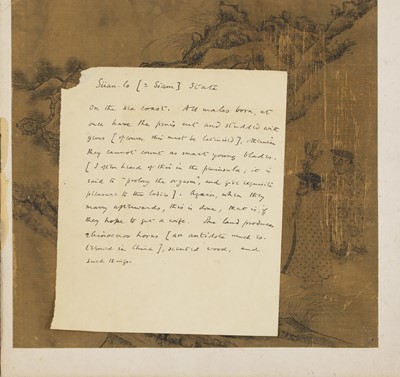 [= Siam] State
On the sea coast. All males born, at
once have the penis cut and studded with
gems [of course this must be latinised], otherwise
they cannot count as smart young blades.
[I often heard of this in the peninsula, it is
said to "prolong the orgasm", and give exquisite
pleasure to the ladies]. Again, when they
marry afterwards, this is done, that is, if
they hope to get a wife. The land produces
rhinoceros horns [an antidote much
in China], scented wood, and
such things.